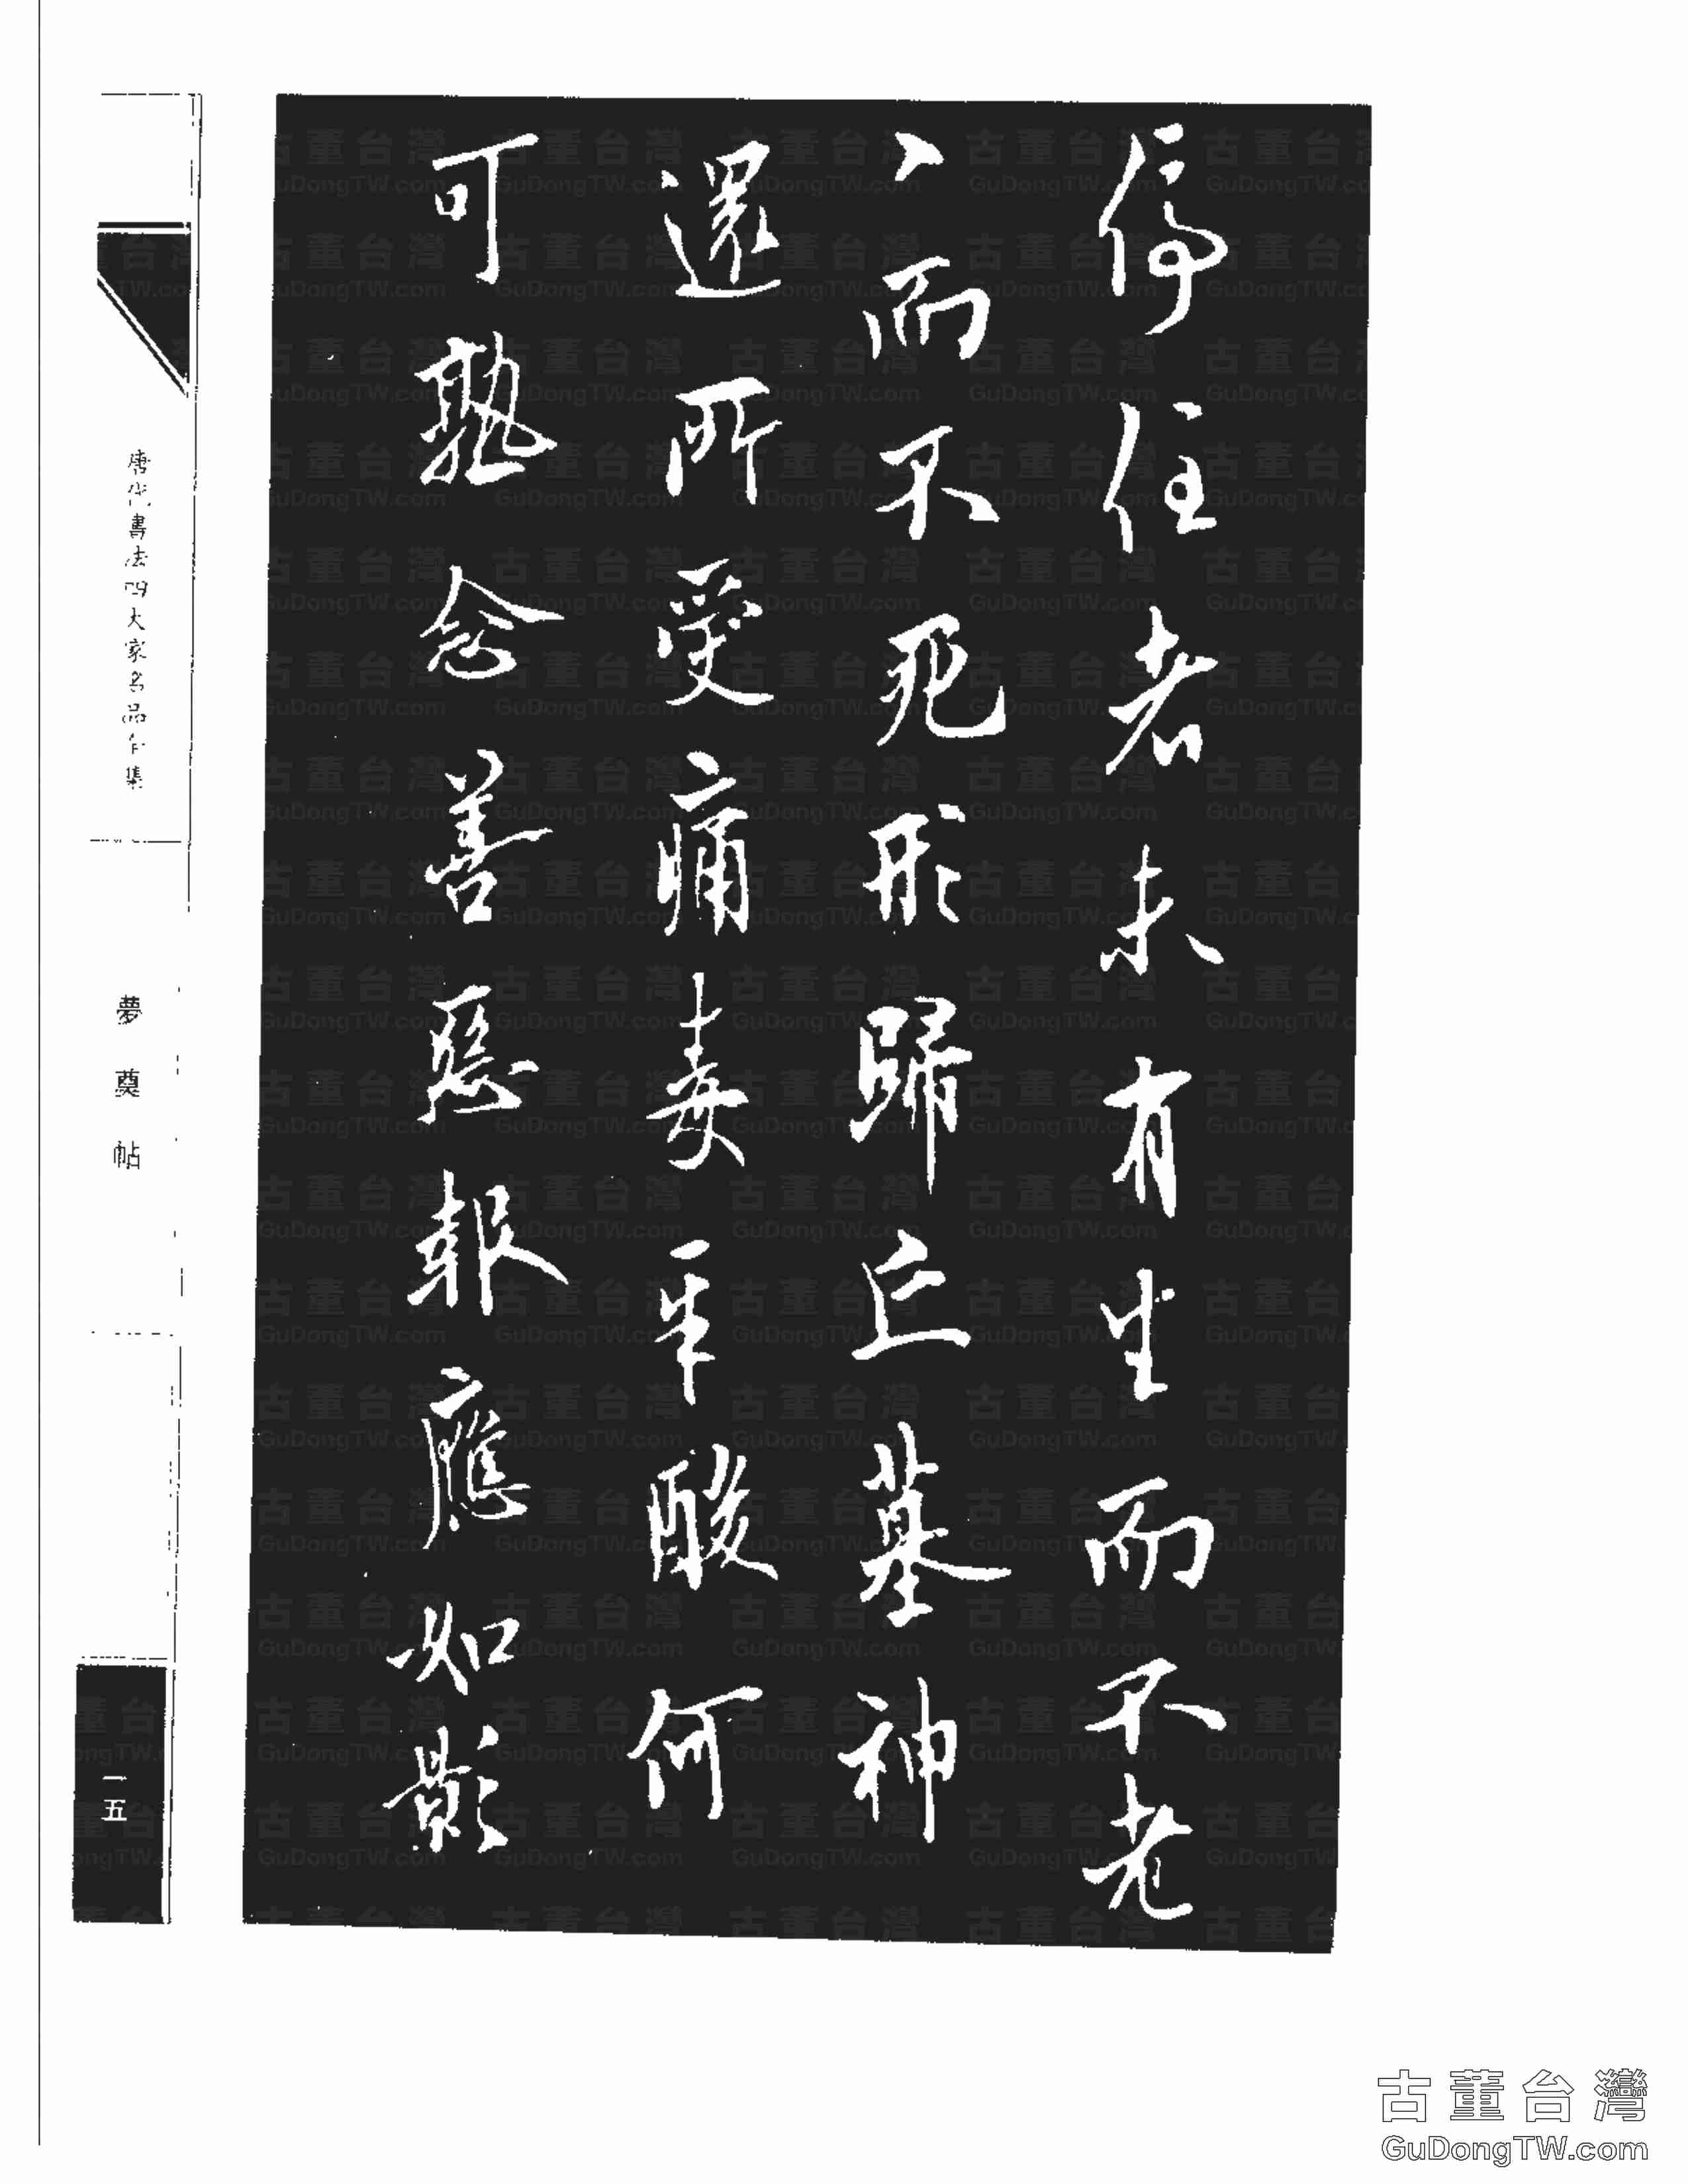 停住者未有生而不老
〻而不死形歸丘墓神
還所受痛毒辛酸何
可熟念善惡報應如影
唐代書法四大家名品全集
夢奠帖
一五
古董台灣
GuDongTW.com